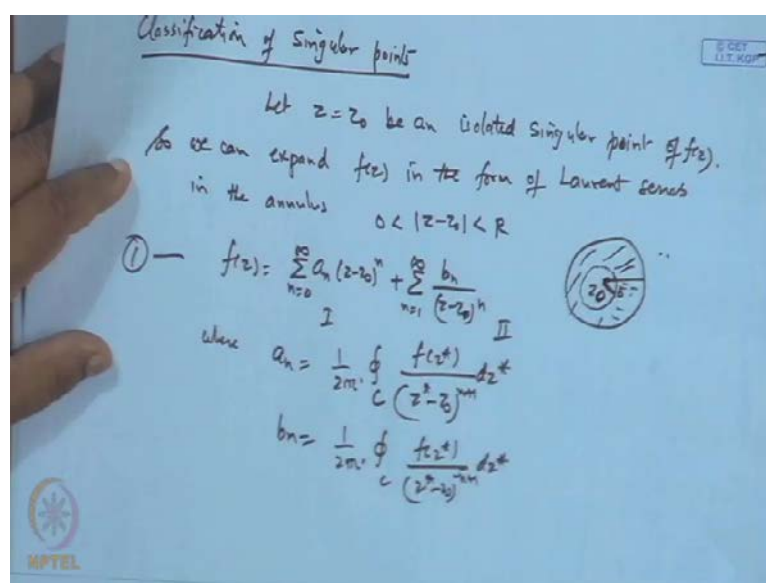 Classification of Singular points
© CET
I.I.T. KGP
Let z = z₀ be an isolated singular point of f(z).
So we can expand f(z) in the form of Laurent series
in the annulus 0 < |z-z₀| < R
① — f(z) = ∑_{n=0}^{∞} aₙ (z-z₀)ⁿ + ∑_{n=1}^{∞} bₙ/(z-z₀)ⁿ
I II
z₀
where aₙ = 1/2πi ∮_C f(z*)/(z*-z₀)^{n+1} dz*
bₙ = 1/2πi ∮_C f(z*)/(z*-z₀)^{-n+1} dz*
NPTEL